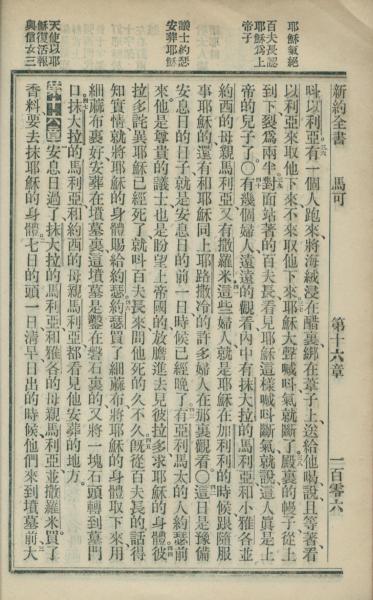 新約全書 馬可 第十六章 一百零六
耶穌氣絕
百夫長認
耶穌爲上
帝子
議士約瑟
安葬耶穌
天使以耶
穌復活報
與信女三
呌以利亞有一個人跑來將海絨浸在醋裏綁在葦子上送給他喝說且等著看
以利亞來取他下來不來取他下來耶穌大聲喊呌氣就斷了殿裏的幔子從上
到下裂爲兩半對面站著的百夫長看見耶穌這樣喊呌斷氣就說這人眞是上
帝的兒子了〇有幾個婦人遠遠的觀看內中有抹大拉的馬利亞和小雅各並
約西的母親馬利亞又有撒羅米這些婦人就是耶穌在加利利的時候跟隨服
事耶穌的還有和耶穌同上耶路撒冷的許多婦人在那裏觀看〇這日是豫備
安息日的日子就是安息日的前一日時候已經晚了有亞利馬太的人約瑟前
來他是尊貴的議士也是盼望上帝國的放膽進去見彼拉多求耶穌的身體彼
拉多詫異耶穌已經死了就呌百夫長來問他死的久不久旣從百夫長的話得
知實情就將耶穌的身體賜給約瑟約瑟買了細蔴布將耶穌的身體取下來用
細蔴布裹好安葬在墳墓裏這墳墓是鑿在磐石裏的又將一塊石頭轉到墓門
口抹大拉的馬利亞和約西的母親馬利亞都看見他安葬的地方
第十六章安息日過了抹大拉的馬利亞和雅各的母親馬利亞並撒羅米買了
香料要去抹耶穌的身體七日的頭一日淸早日出的時候他們來到墳墓前大